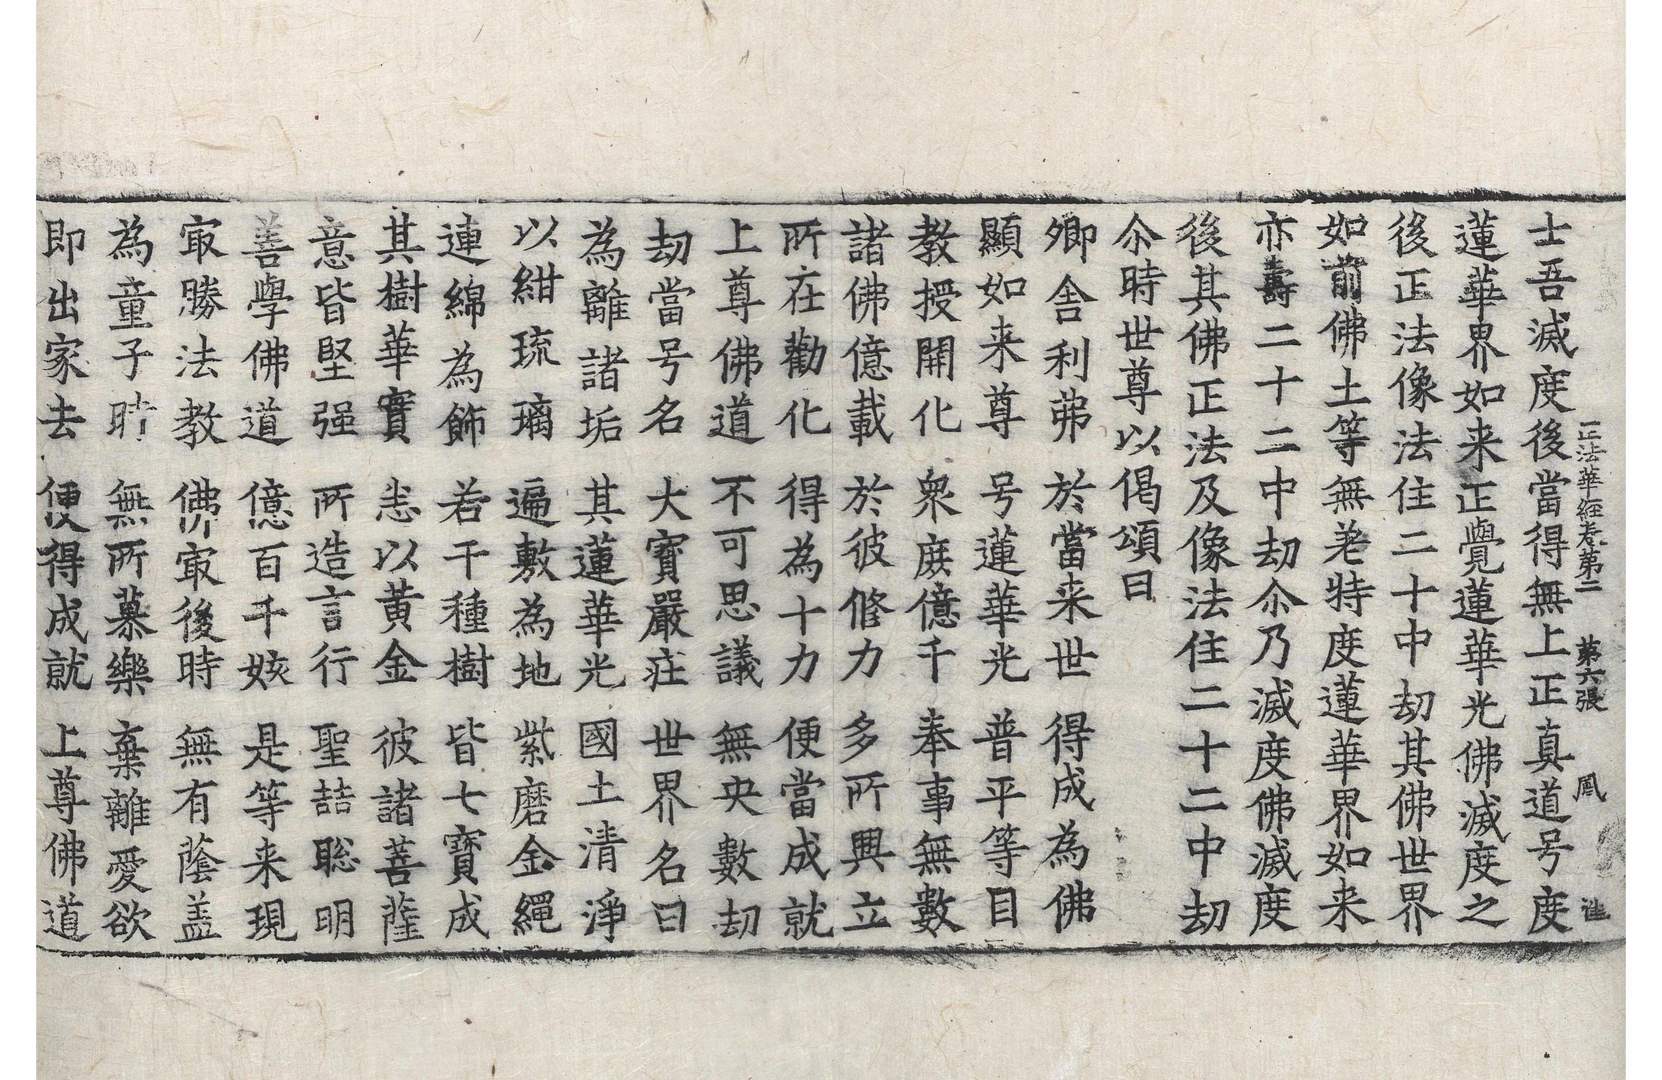 正法華經卷第二 第六張 鳳
士吾滅度後當得無上正真道号度
蓮華界如来正覺蓮華光佛滅度之
後正法像法住二十中劫其佛世界
如前佛土等無差特度蓮華界如来
亦壽二十二中劫尒乃滅度佛滅度
後其佛正法及像法住二十二中劫
尒時世尊以偈頌曰
卿舍利弗 於當来世 得成為佛
顯如来尊 号蓮華光 普平等目
教授開化 衆庶億千 奉事無數
諸佛億載 於彼修力 多所興立
所在勸化 得為十力 便當成就
上尊佛道 不可思議 無央數劫
劫當号名 大寶嚴莊 世界名曰
為離諸垢 其蓮華光 國土清淨
以紺琉璃 遍敷為地 紫磨金繩
連綿為飾 若干種樹 皆七寶成
其樹華實 恙以黃金 彼諸菩薩
意皆堅强 所造言行 聖喆聡明
善學佛道 億百千姟 是等来現
㝡勝法教 佛㝡後時 無有蔭盖
為童子時 無所慕樂 棄離愛欲
即出家去 便得成就 上尊佛道